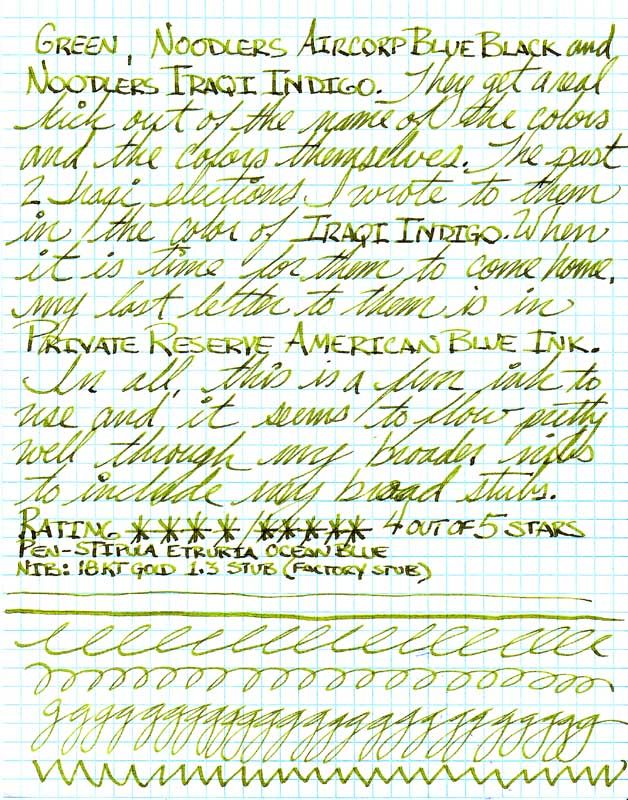 GREEN, NOODLERS AIRCORP BLUE BLACK and
NOODLERS IRAQI INDIGO. They get a real
kick out of the name of the colors
and the colors themselves. The past
2 Iraqi elections I wrote to them
in the color of IRAQI INDIGO. When
it is time for them to come home,
my last letter to them is in
PRIVATE RESERVE AMERICAN BLUE INK.
In all, this is a fun ink to
use and it seems to flow pretty
well through my broader nibs
to include my broad stubs.
RATING ****/***** 4 OUT OF 5 STARS
PEN-STIPULA ETRURIA OCEAN BLUE
NIB: 18KT GOLD 1.3 STUB (FACTORY STUB)